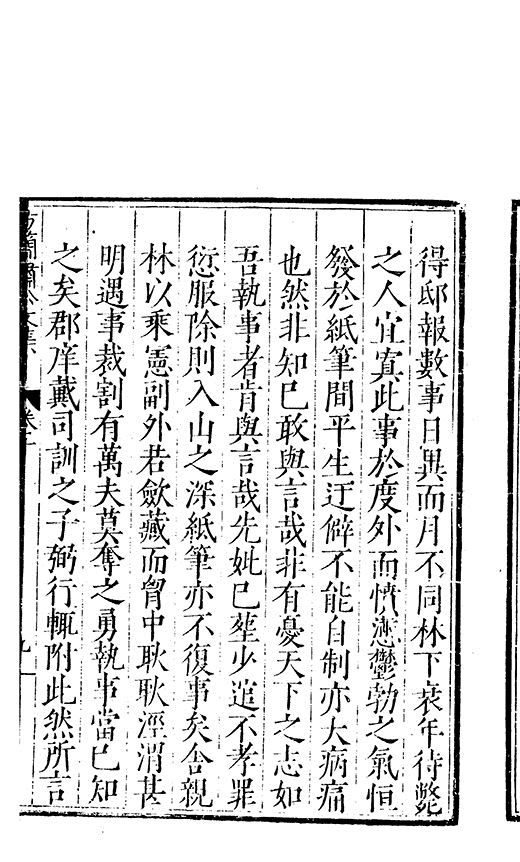 得邸報數事日異而月不同林下衰年待斃
之人宜寘此事於度外而憤懣鬱勃之氣恒
發於紙筆間平生迂僻不能自制亦大病痛
也然非知巳敢與言哉非有憂天下之志如
吾執事者肯與言哉先妣巳塟少逭不孝罪
愆服除則入山之深紙筆亦不復事矣舍親
林以乘憲副外若歛藏而胷中耿耿涇渭甚
明遇事裁割有萬夫莫奪之勇執事當巳知
之矣郡庠戴司訓之子弼行輒附此然所言
方簡肅公文集
卷十
九